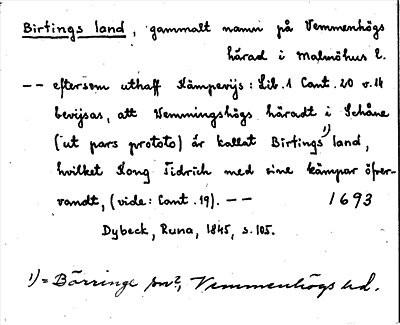 Birtings land, gammalt namn på Vemmenhögs
härad i Malmöhus l.
-- eftersom uthaff Kämpevijs: Lib. 1 Cant. 20 v. 14
bevijsas, att Wemmingshögs häradt i Schåne
(ut pars prototo) är kallat Birtings¹⁾ land,
hvilket Kong Tidrich med sine kämpar öfver-
vandt, (vide: Cant. 19). -- 1693
Dybeck, Runa, 1845, s. 105.
¹⁾ = Börringe sn?, Vemmenhögs hd.